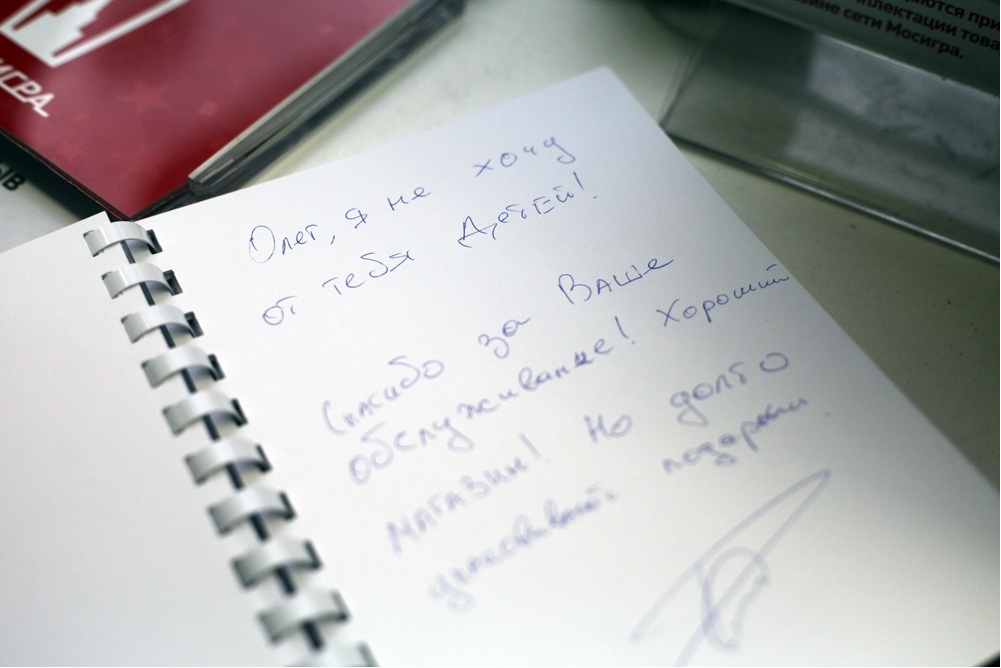 ИГРА
ЫВ
ются при
плектации това
ине сети Мосигра.
Олег, я не хочу
от тебя Детей!
Спасибо за Ваше
обслуживание! Хороший
магазин! Но долго
упаковывают подарки.